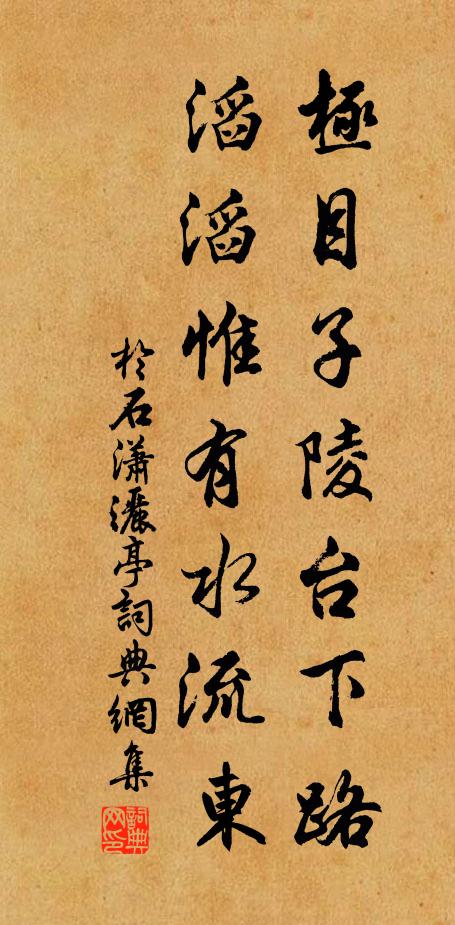 極目子陵台下路
滔滔惟有水流東
於石瀟灑亭詞典網集
詞典
网印